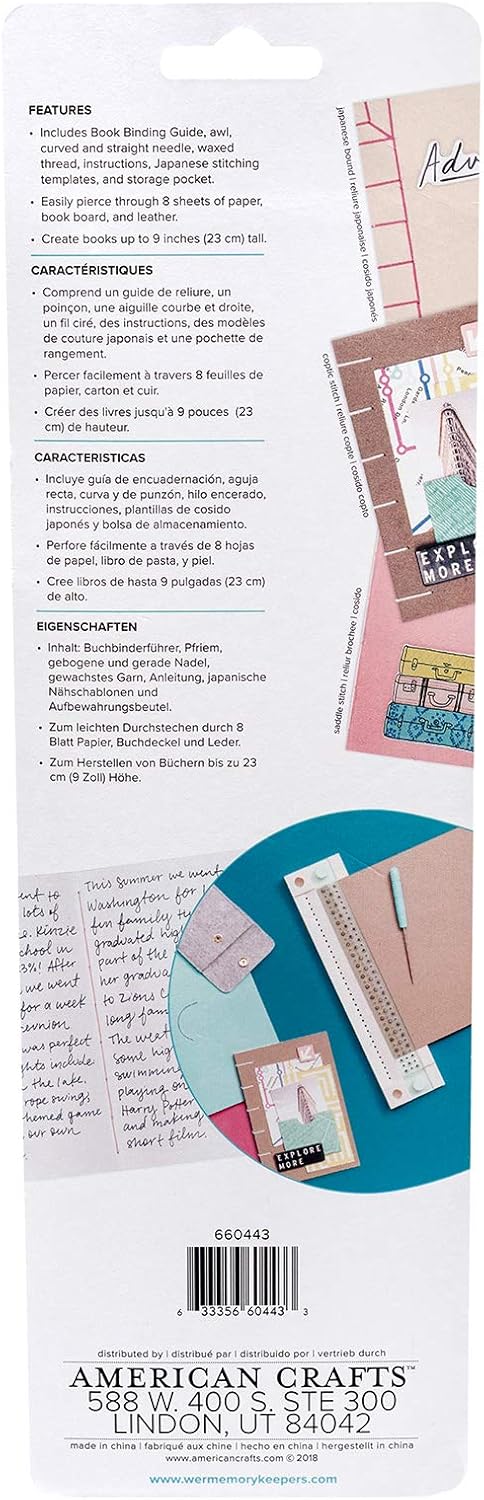 FEATURES
• Includes Book Binding Guide, awl,
curved and straight needle, waxed
thread, instructions, Japanese stitching
templates, and storage pocket.
• Easily pierce through 8 sheets of paper,
book board, and leather.
• Create books up to 9 inches (23 cm) tall.
CARACTÉRISTIQUES
• Comprend un guide de reliure, un
poinçon, une aiguille courbe et droite,
un fil ciré, des instructions, des modèles
de couture japonais et une pochette de
rangement.
• Percer facilement à travers 8 feuilles de
papier, carton et cuir.
• Créer des livres jusqu'à 9 pouces (23
cm) de hauteur.
CARACTERISTICAS
• Incluye guía de encuadernación, aguja
recta, curva y de punzón, hilo encerado,
instrucciones, plantillas de cosido
japonés y bolsa de almacenamiento.
• Perfore fácilmente a través de 8 hojas
de papel, libro de pasta, y piel.
• Cree libros de hasta 9 pulgadas (23 cm)
de alto.
EIGENSCHAFTEN
• Inhalt: Buchbinderführer, Pfriem,
gebogene und gerade Nadel,
gewachstes Garn, Anleitung, japanische
Nähschablonen und
Aufbewahrungsbeutel.
• Zum leichten Durchstechen durch 8
Blatt Papier, Buchdeckel und Leder.
• Zum Herstellen von Büchern bis zu 23
cm (9 Zoll) Höhe.
japanese bound | reliure japonaise | cosido japonés
Adv
coptic stitch | reliure copte | cosido copto
EXPLO
MORE
saddle stitch | reliur brochee | cosido
ent to
lots of
e. Kinzie
chool in
3%! After
we went
for a week
eunion
was perfect
ghts include
the lake,
rope swings
themed game
our own
This summer we went
Washington for
fun family t
graduated hig
part of the
her gradua
to Zions C
long fam
The weat
some hig
swimmin
playing on
Harry Potter
and making
short film.
EXPLORE
MORE
660443
6 33356 60443 3
distributed by | distribué par | distribuido por | vertrieb durch
AMERICAN CRAFTS™
588 W. 400 S. STE 300
LINDON, UT 84042
made in china | fabriqué aux chine | hecho en china | hergestellt in china
www.americancrafts.com © 2018
www.wermemorykeepers.com